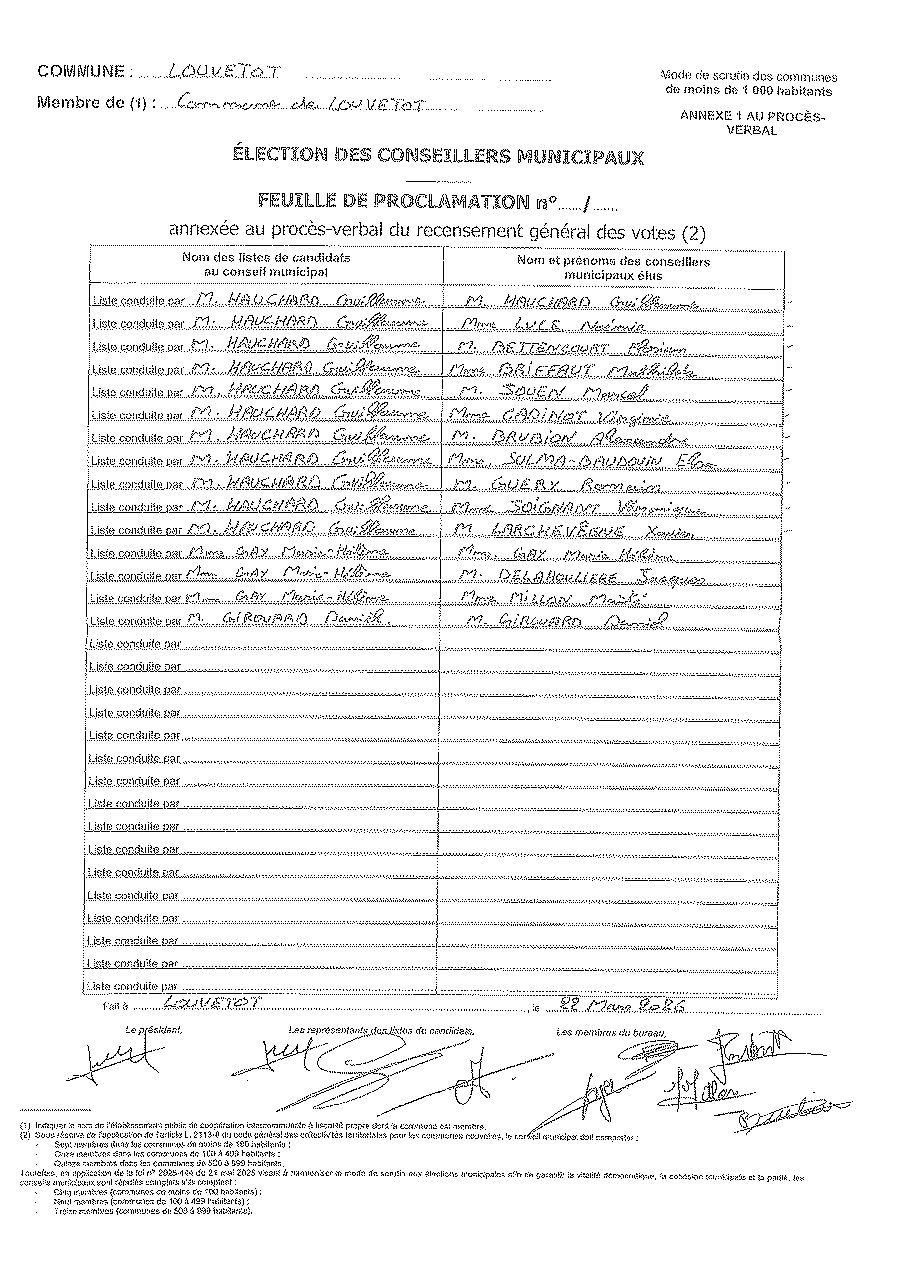 COMMUNE : LOUVETOT
Mode de scrutin des communes
de moins de 1 000 habitants
Membre de (1) : Commune de LOUVETOT
ANNEXE 1 AU PROCÈS-
VERBAL
ÉLECTION DES CONSEILLERS MUNICIPAUX
FEUILLE DE PROCLAMATION n°....../......
annexée au procès-verbal du recensement général des votes (2)
Nom des listes de candidats
au conseil municipal
Nom et prénoms des conseillers
municipaux élus
Liste conduite par M. HAUCHARD Guillaume M. HAUCHARD Guillaume
Liste conduite par M. HAUCHARD Guillaume Mme LYLE Noémie
Liste conduite par M. HAUCHARD Guillaume M. BETTENCOURT Florian
Liste conduite par M. HAUCHARD Guillaume Mme BRIEFAUT Mathilde
Liste conduite par M. HAUCHARD Guillaume M. SOUEN Marcel
Liste conduite par M. HAUCHARD Guillaume Mme CADINOT Virginie
Liste conduite par M. HAUCHARD Guillaume M. BRUDION Alexandre
Liste conduite par M. HAUCHARD Guillaume Mme SULMA-BAUDOUIN Elsa
Liste conduite par M. HAUCHARD Guillaume M. GUERY Romain
Liste conduite par M. HAUCHARD Guillaume Mme SOIGNANT Véronique
Liste conduite par M. HAUCHARD Guillaume M. LARCHEVÊQUE Xavier
Liste conduite par Mme GAY Marie-Hélène Mme GAY Marie Hélène
Liste conduite par Mme GAY Marie-Hélène M. DELAHOULIERE Jacques
Liste conduite par M GAY Marie-Hélène Mme MILLAN Maïté
Liste conduite par M. GIROUARD Daniel. M. GIROUARD Daniel
Liste conduite par
Liste conduite par
Liste conduite par
Liste conduite par
Liste conduite par
Liste conduite par
Liste conduite par
Liste conduite par
Liste conduite par
Liste conduite par
Liste conduite par
Liste conduite par
Liste conduite par
Liste conduite par
Liste conduite par
Liste conduite par
Fait à LOUVETOT , le 22 Mars 2026
Le président, Les représentants des listes de candidats, Les membres du bureau,
(1) Indiquer le nom de l'établissement public de coopération intercommunale à fiscalité propre dont la commune est membre.
(2) Sous réserve de l'application de l'article L. 2113-8 du code général des collectivités territoriales pour les communes nouvelles, le conseil municipal doit comporter :
- Sept membres dans les communes de moins de 100 habitants ;
- Onze membres dans les communes de 100 à 499 habitants ;
- Quinze membres dans les communes de 500 à 999 habitants.
Toutefois, en application de la loi n° 2025-444 du 21 mai 2025 visant à harmoniser le mode de scrutin aux élections municipales afin de garantir la vitalité démocratique, la cohésion municipale et la parité, les
conseils municipaux sont réputés complets s'ils comptent :
- Cinq membres (communes de moins de 100 habitants) ;
- Neuf membres (communes de 100 à 499 habitants) ;
- Treize membres (communes de 500 à 999 habitants).